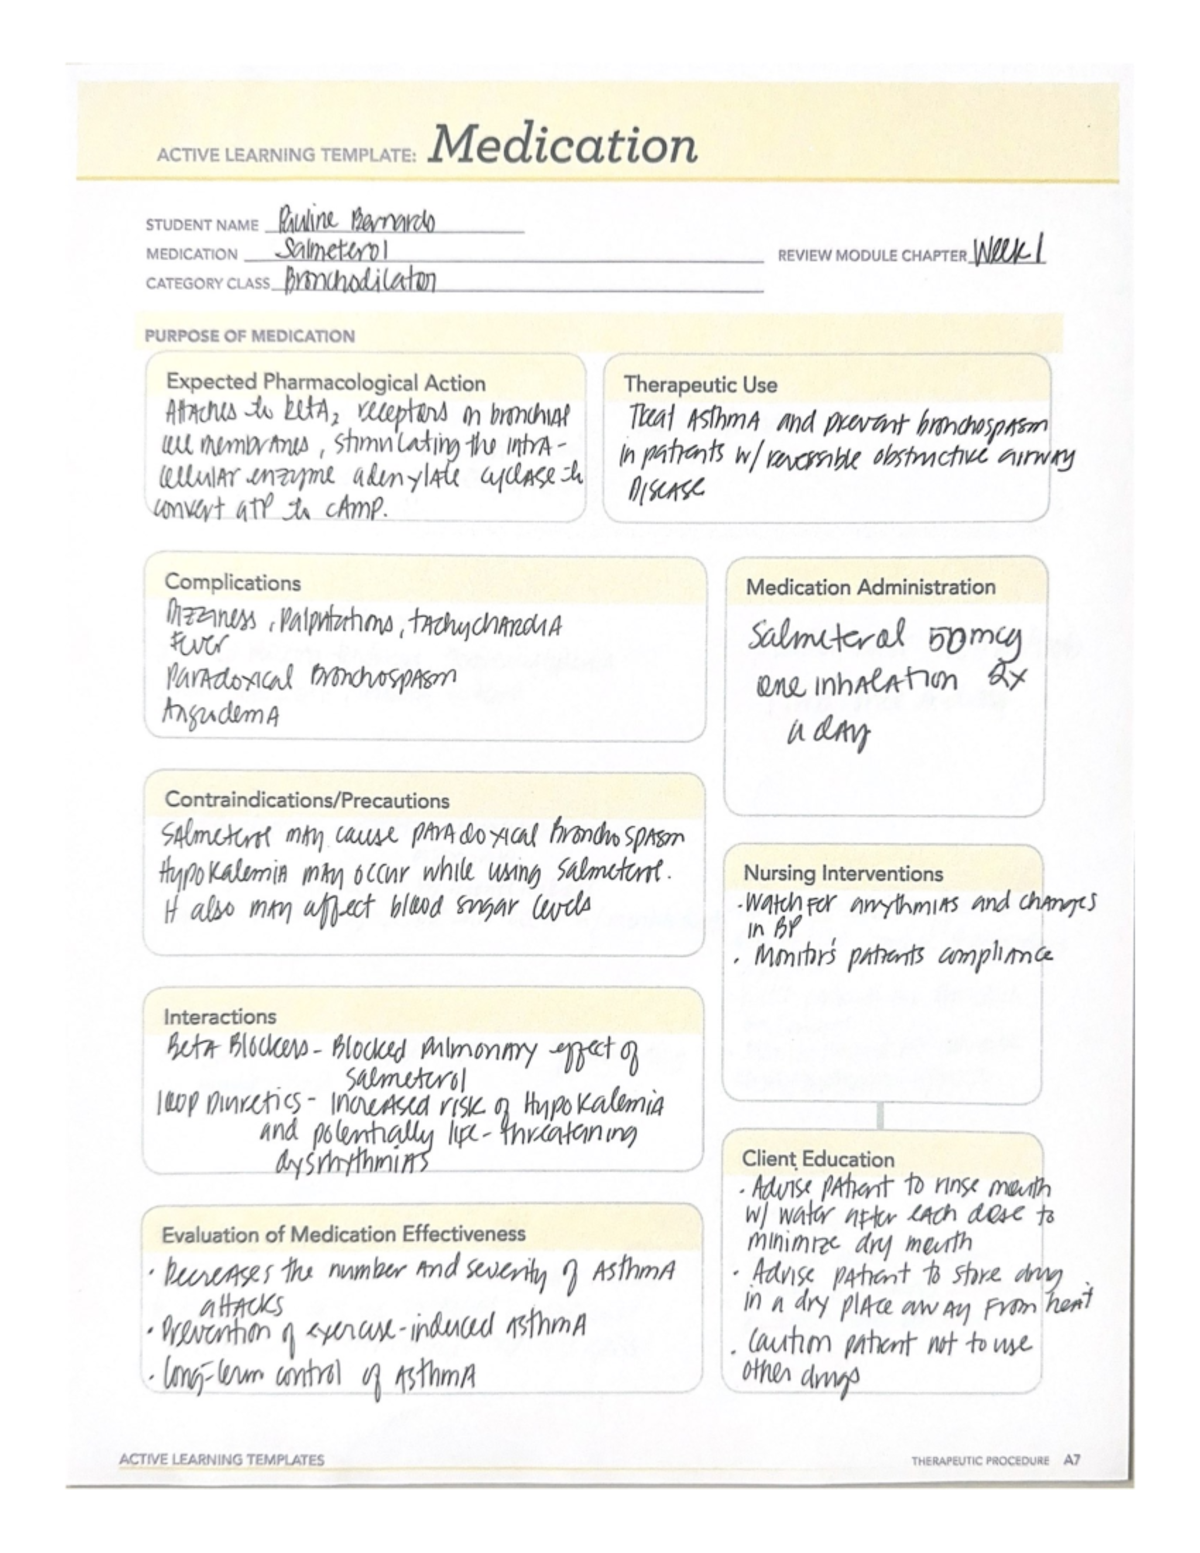 ACTIVE LEARNING TEMPLATE: Medication
STUDENT NAME Pauline Bernardo
MEDICATION Salmeterol
REVIEW MODULE CHAPTER Week 1
CATEGORY CLASS Bronchodilator
PURPOSE OF MEDICATION
Expected Pharmacological Action
Attaches to beta₂ receptors on bronchial
cell membranes, stimulating the intra-
cellular enzyme adenylate cyclase to
convert ATP to cAMP.
Therapeutic Use
Treat Asthma and prevent bronchospasm
in patients w/ reversible obstructive airway
Disease
Complications
Dizziness, Palpitations, tachychardia
Fever
Paradoxical Bronchospasm
Angiodema
Medication Administration
Salmeterol 50mcg
one inhalation 2x
a day
Contraindications/Precautions
Salmeterol may cause paradoxical Bronchospasm
Hypokalemia may occur while using Salmeterol.
It also may affect blood sugar levels
Nursing Interventions
· Watch for arrythmias and changes
in BP
· Monitor's patients compliance
Interactions
Beta Blockers - Blocked Pulmonary effect of
Salmeterol
Loop Diuretics - Increased risk of Hypokalemia
and potentially life-threataning
dysrhythmias
Evaluation of Medication Effectiveness
· Decreases the number and severity of Asthma
attacks
· Prevention of exercise-induced Asthma
· Long-term control of Asthma
Client Education
· Advise patient to rinse mouth
w/ water after each dose to
minimize dry mouth
· Advise patient to store drug
in a dry place away from heat
· Caution patient not to use
other drugs
ACTIVE LEARNING TEMPLATES
THERAPEUTIC PROCEDURE A7